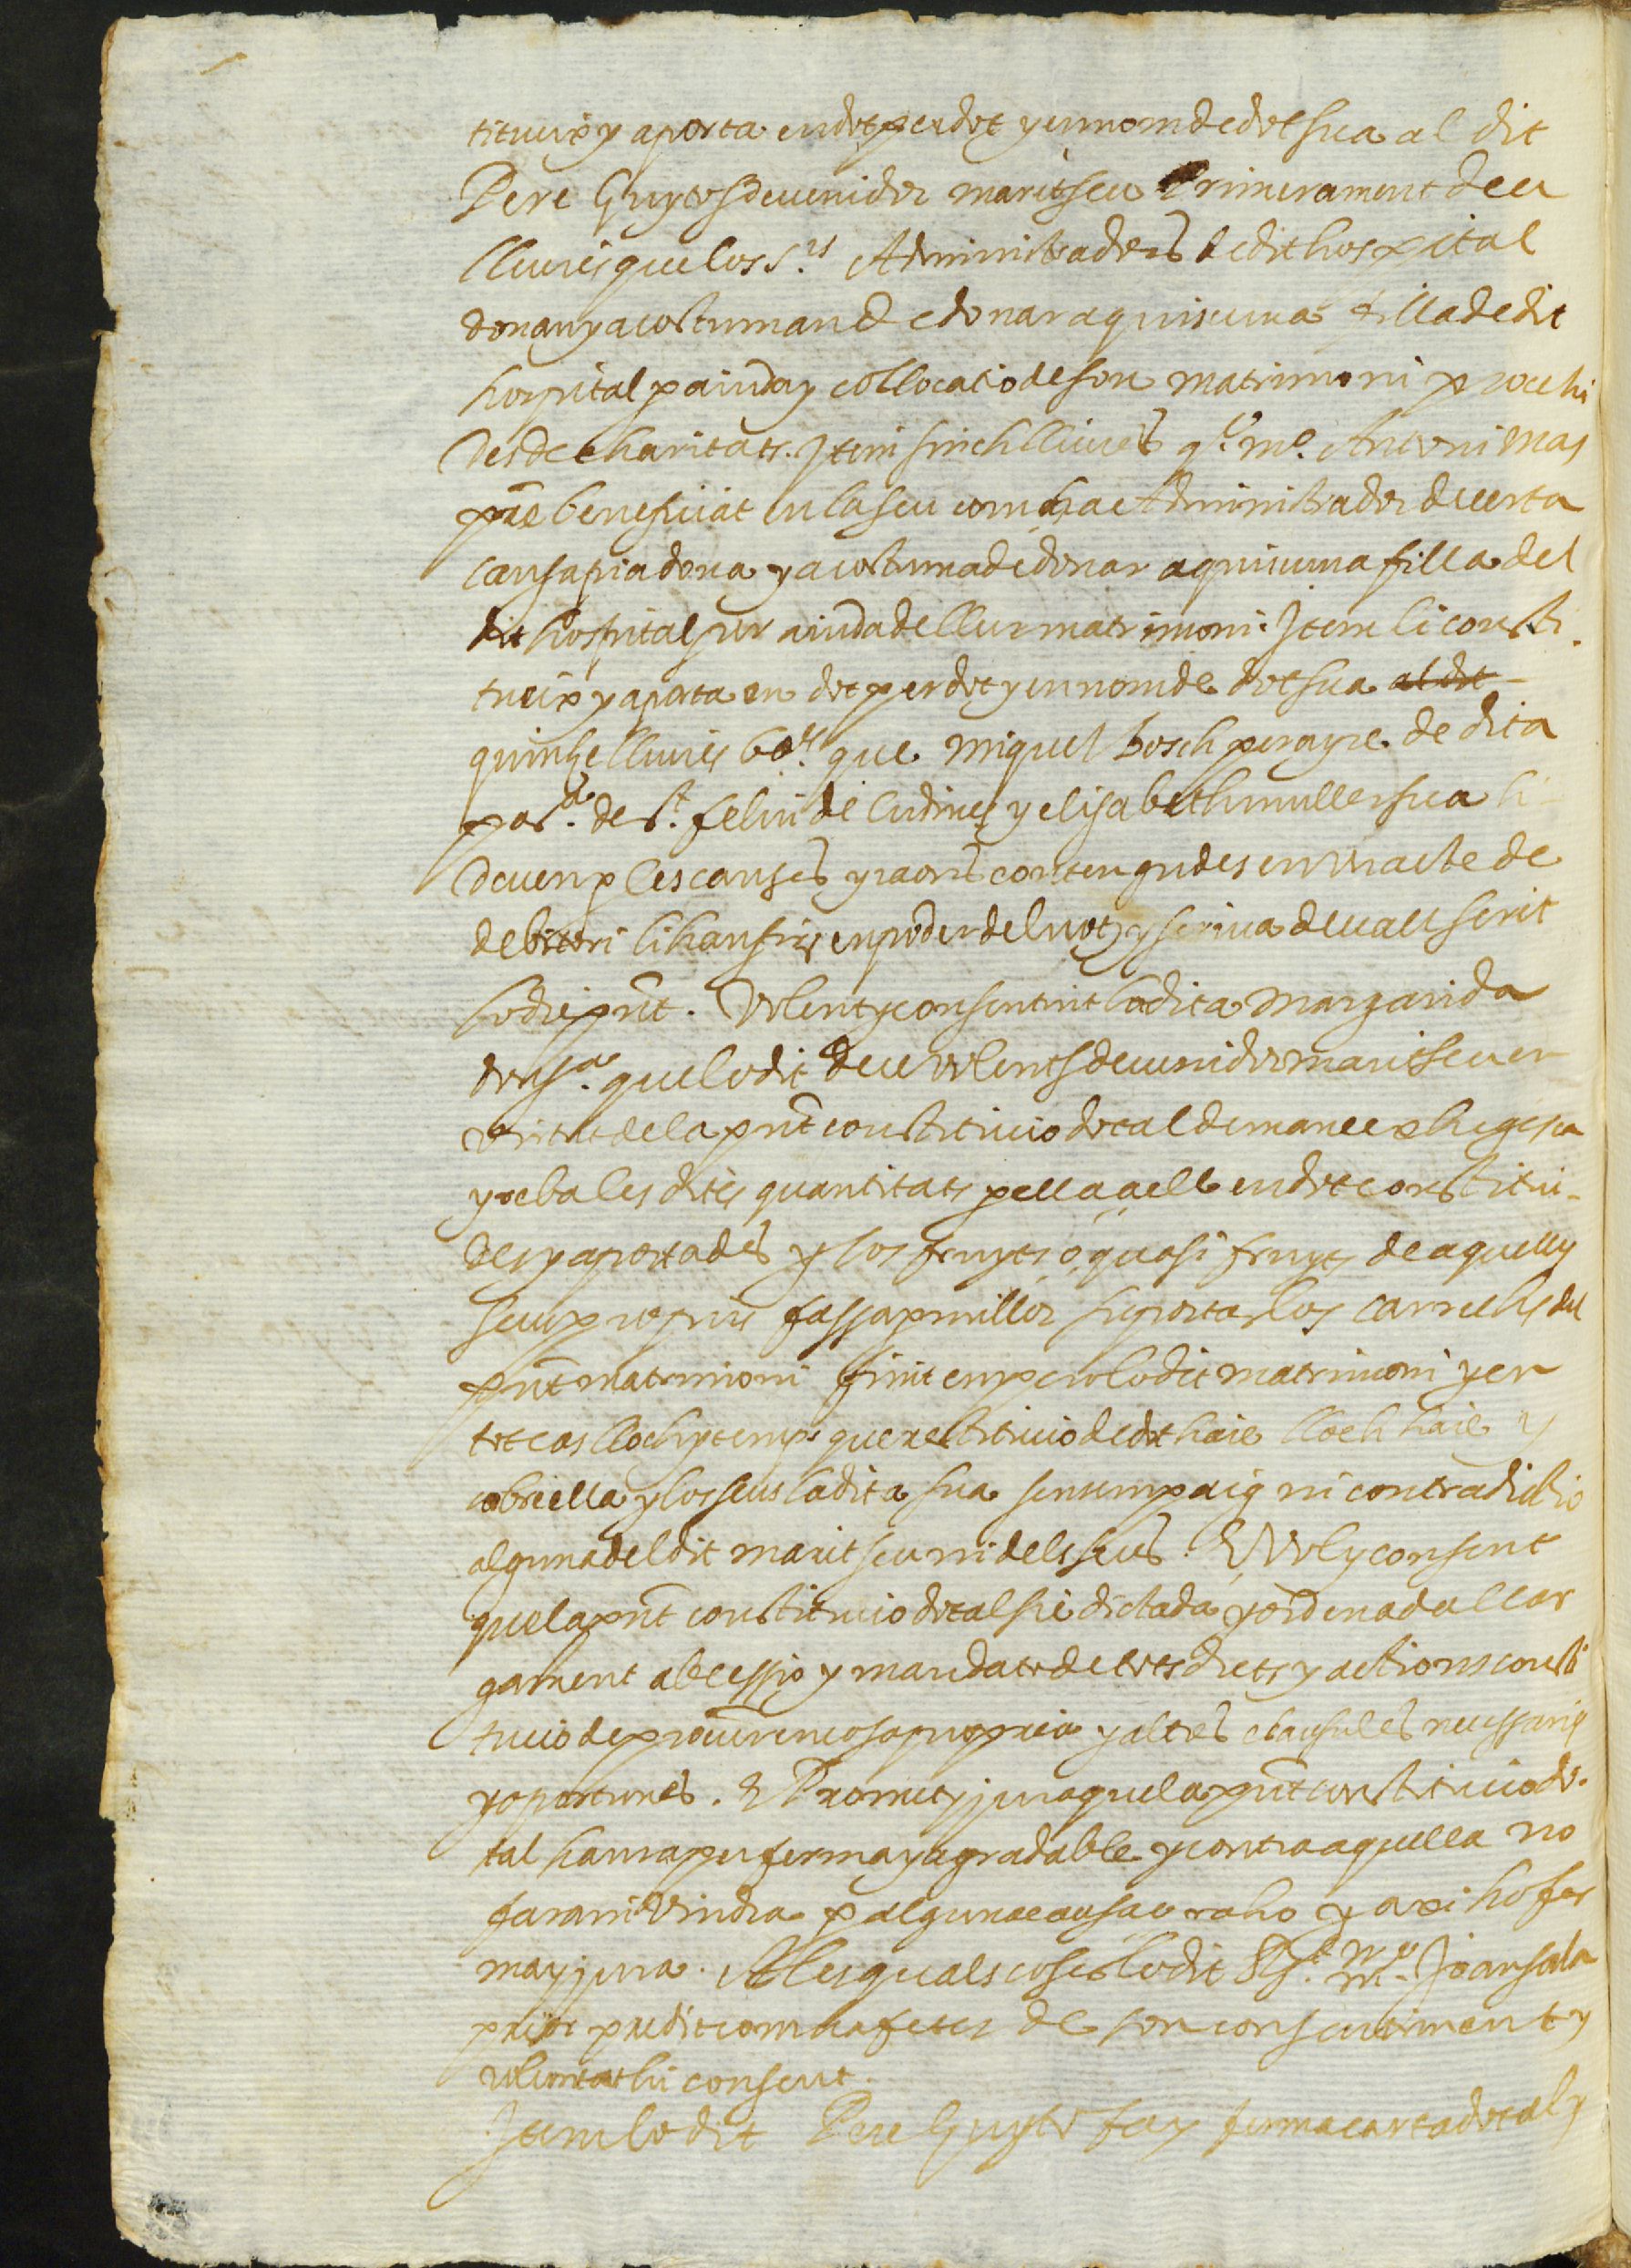 titueix y aporta en dot per dot y en nom de dot sua al dit
Pere Guyto sdevenidor marit seu Primerament deu
lliures que los s.rs Administradors de dit hospital
donan y acostuman de donar a quiscuna filla de dit
hospital p aiuda y collocatio de son matrimoni procehi
des de charitats. Item sinch lliures q.e m.o Antoni Mas
pre beneficiat en la seu com ha Administrador de certa
causa pia dona y acostuma de donar a quiscuna filla del
dit hospital per aiuda de llur matrimoni. Item li consti
tueix y aporta en dot per dot y en nom de dot sua al dit
quinse lliures b.s que Miquel Bosch perayre de dita
par.a de s.t feliu de y elisabeth muller sua li
deuen p les causes y raons contengudes en un acte de
debitori li han fet en poder del not y scriva devall scrit
lo die pnt. Volent y consentint la dita Margarida
donsa. que lo dit deu volents devenidor marit seu en
virtut de la pnt constitucio dotal demane exhigesca
y reba les dites quantitats p ella a ell en dot constitui-
des y aportades y los fruyts o quasi fruyts de aquelles
seus propris fassa p millor suportar los carrechs del
pnt matrimoni finit empero lo dit matrimoni y en
tot cas lloch y temps que restitucio de dot haie lloch haie y
cobre ella y los seus la dita sua sens empaig ni contradictio
alguna del dit marit seu ni dels seus. E vol y consent
que la pnt constitucio dotal sie dictada y ordenada llar
gament ab cessio y mandato de tots drets y actions consti
tucio de procur en cosa propria y altres clausules necessaries
y oportunes. E Promet y jura que la pnt constitucio do-
tal haura per ferma y agradable y contra aquella no
fara ni vindra p alguna causa o raho y axi ho fer
ma y jura. A les quals coses lo dit m.o Joan sala
prior predit com ha fetes de son consentiment y
voluntat hi consent.
Item lo dit Pere Guyto fa y ferma carta dotal y